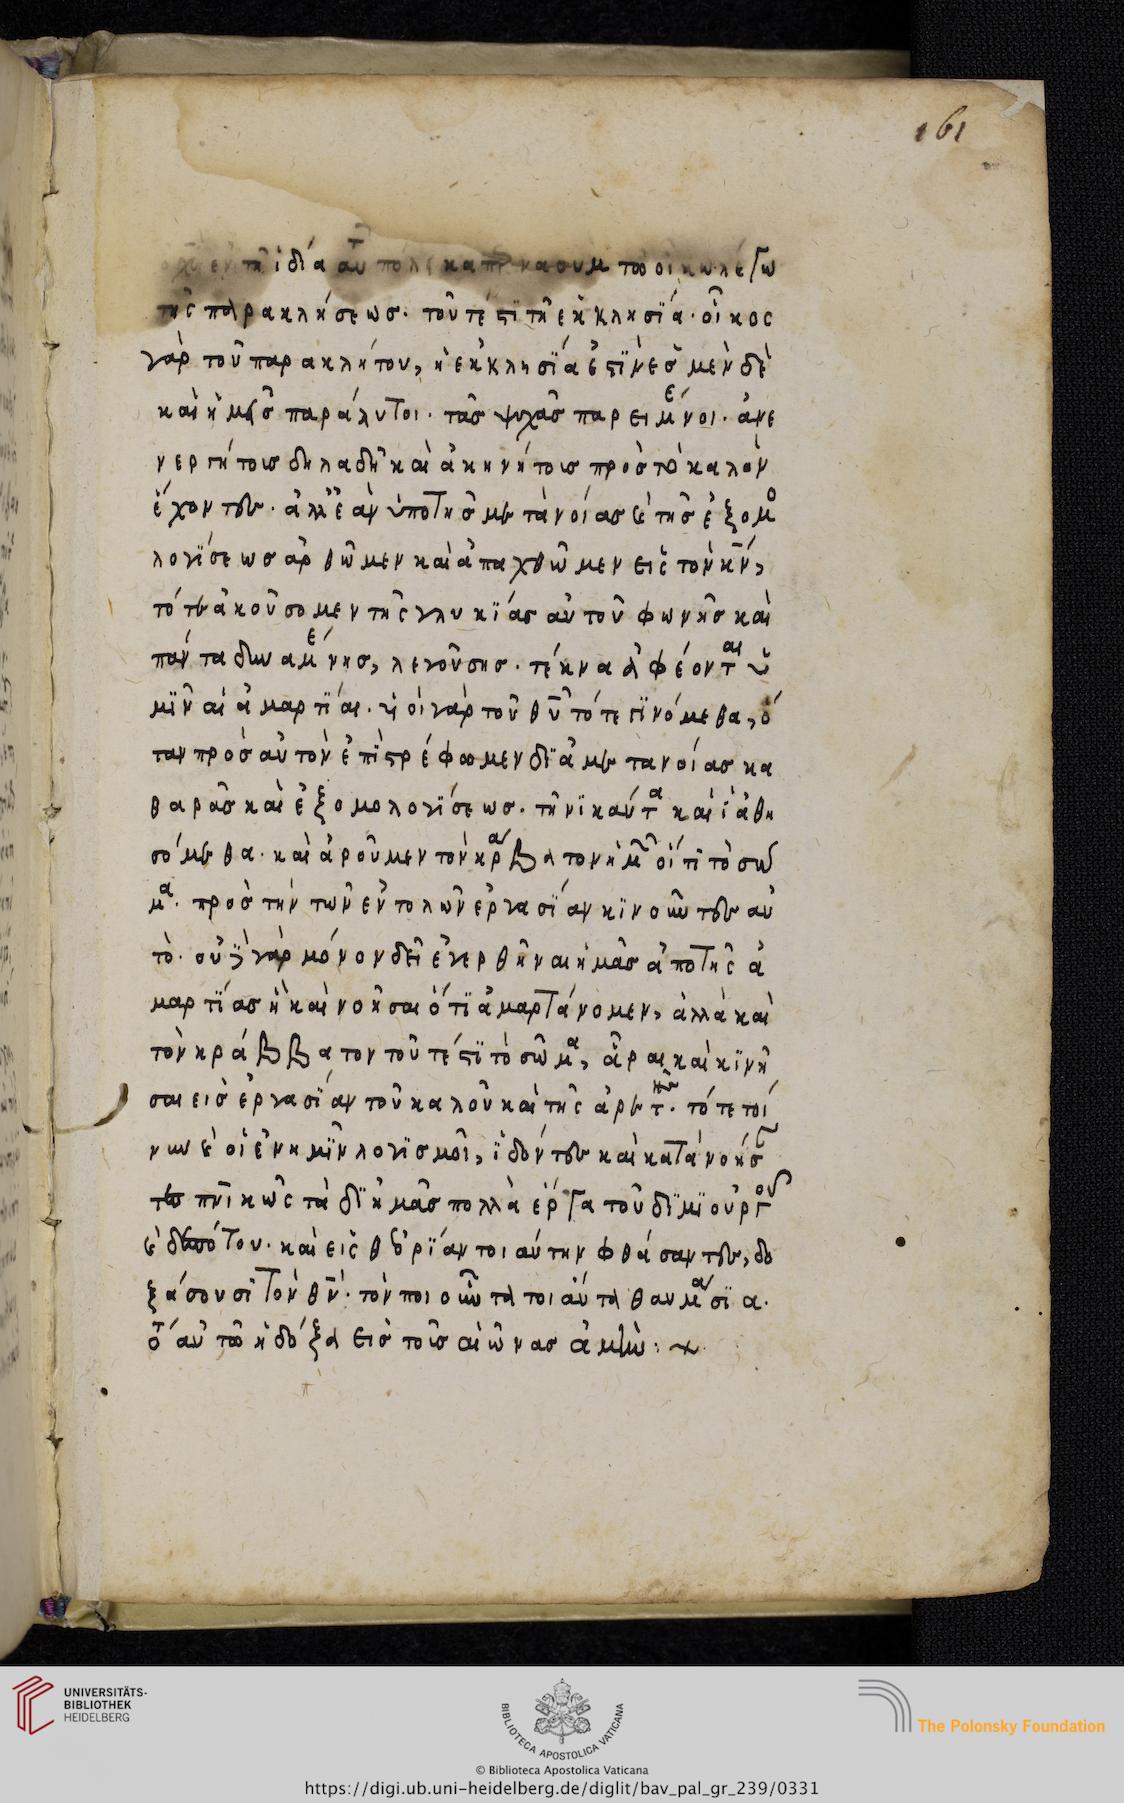 161
ἐν τῆ ἰδία αὐτ πόλει καπερναουμ τῶ οἴκω λέγω
τῆς παρακλήσεως· τοῦτέστϊ τῆ ἐκκλησΐα· οἶκος
γὰρ τοῦ παρακλήτου, ἡ ἐκκλησΐα ἐστϊν ἐσμὲν δὲ
καὶ ἡμεῖς παράλυτοι· τὰς ψυχὰς παρειμένοι· ἀνε
νεργήτους δηλαδὴ καὶ ἀκηνήτους πρὸς τὸ καλὸν
ἔχοντες· ἀλλ' ἐὰν ὑπὸ τῆς μετανοίας καὶ τῆς ἐξομο
λογΐσεως ἀρθῶμεν καὶ ἀπαχθῶμεν εἰς τὸν κν̄,
τότε ἀκούσομεν τῆς γλυκΐας αὐτοῦ φωνῆς καὶ
πάντα δυναμένης, λεγούσης· τέκνα ἀφέονται ὑ
μϊν αἱ ἁμαρτΐαι· υἱοὶ γὰρ τοῦ θῡ τότε γϊνόμεθα, ὅ
ταν πρὸς αὐτὸν ἐπϊστρέφωμεν δϊὰ μετανοίας κα
θαρᾶς καὶ ἐξομολογΐσεως· τηνϊκαῦτα καὶ ἰαθη
σόμεθα· καὶ ἀροῦμεν τὸν κράββατον ἡμῶν ἤτι τὸ σῶ
μα· πρὸς τὴν τῶν ἐντολῶν ἐργασΐαν κϊνοῦντες αὐ
τὸ· οὐ γὰρ μόνον δεῖ ἐγερθῆναι ἡμᾶς ἀπὸ τῆς ἁ
μαρτΐας ἢ καὶ νοῆσαι ὅτϊ ἁμαρτάνομεν, ἀλλὰ καὶ
τὸν κράββατον τοῦτέστϊ τὸ σῶμα, ἆραι καὶ κϊνῆ
σαι εἰς ἐργασΐαν τοῦ καλοῦ καὶ τῆς ἀρετῆς· τότε τοί
νυν καὶ οἱ ἐν ημϊν λογϊσμοὶ, ἰδόντες καὶ κατανοήσαν
τες πνῑκῶς τὰ δϊ ἡμᾶς πολλὰ ἔργα τοῦ δϊμϊουργοῦ
καὶ δεσπότου· καὶ εἰς θεωρΐαν τοιαύτην φθάσαντες, δο
ξάσουσϊ τὸν θν̄· τὸν ποιοῦντα τοιαῦτα θαυμάσϊα·
ὅτι αὐτῶ ἡ δόξα εἰς τοὺς αἰῶνας ἀμήν:
UNIVERSITÄTS-
BIBLIOTHEK
HEIDELBERG
BIBLIOTECA APOSTOLICA VATICANA
The Polonsky Foundation
© Biblioteca Apostolica Vaticana
https://digi.ub.uni-heidelberg.de/diglit/bav_pal_gr_239/0331